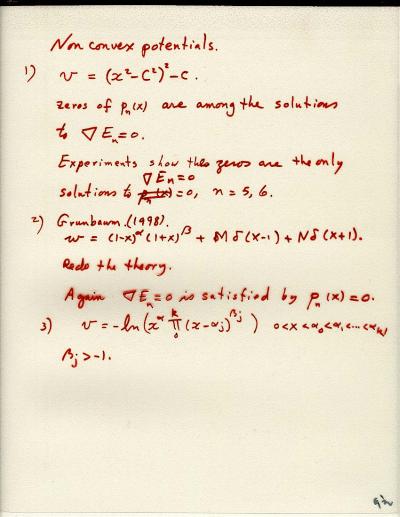 Non convex potentials.
1) v = (x²-C²)²-C.
zeros of pₙ(x) are among the solutions
to ∇Eₙ=0.
Experiments show theo zeros are the only
∇Eₙ=0
solutions to =0, n = 5, 6.
2) Grunbaum.(1998).
w = (1-x)^α (1+x)^β + M δ(x-1) + N δ(x+1).
Redo the theory.
Again ∇Eₙ=0 is satisfied by pₙ(x)=0.
3) v = -ln(x^α ∏₀ᵏ (x-αⱼ)^βⱼ) 0<x<α₀<α₁<...<αₖ)
βⱼ>-1.